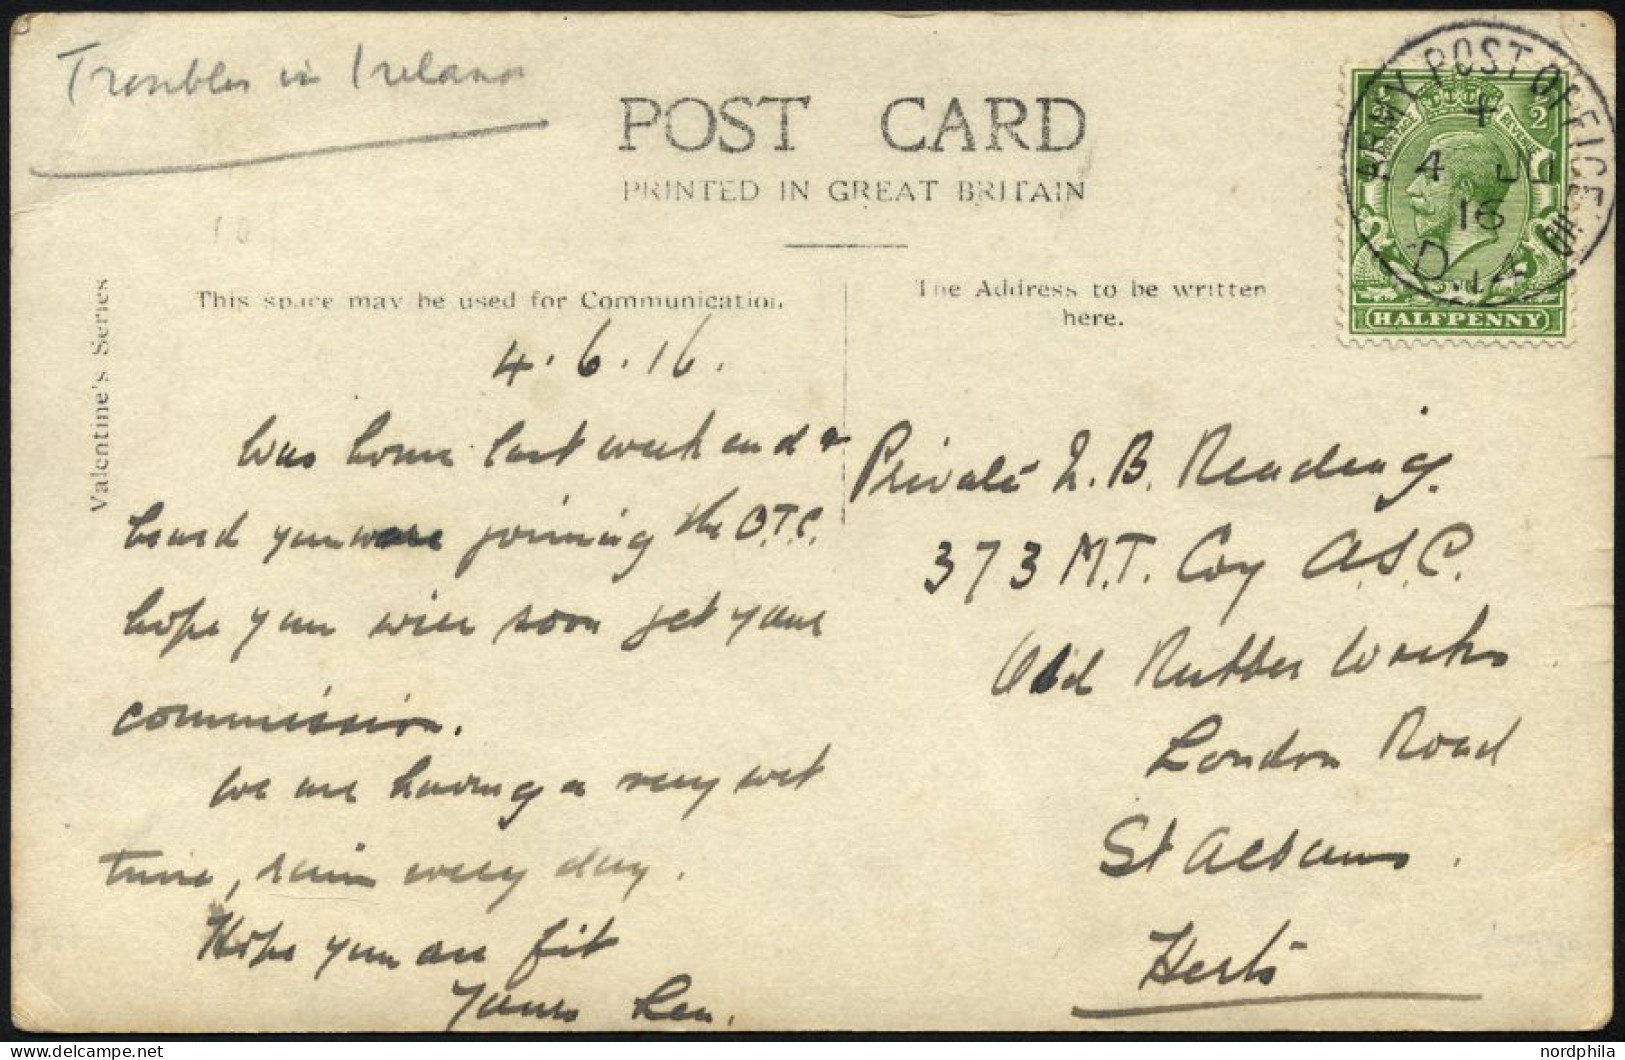 Troubles in Ireland
POST CARD
PRINTED IN GREAT BRITAIN
Valentine's Series
This space may be used for Communication.
The Address to be written
here.
ARMY POST OFFICE
4
4 JU
16
D.1.A
HALFPENNY
4.6.16.
Was home last week end &
heard you were joining the O.T.C.
hope you will soon get your
commission.
We are having a very wet
time, rain every day.
Hope you are fit
Yours Len.
Private L. B. Reading.
373 M.T. Coy A.S.C.
Old Rubber Works
London Road
St Albans.
Herts
nordphila